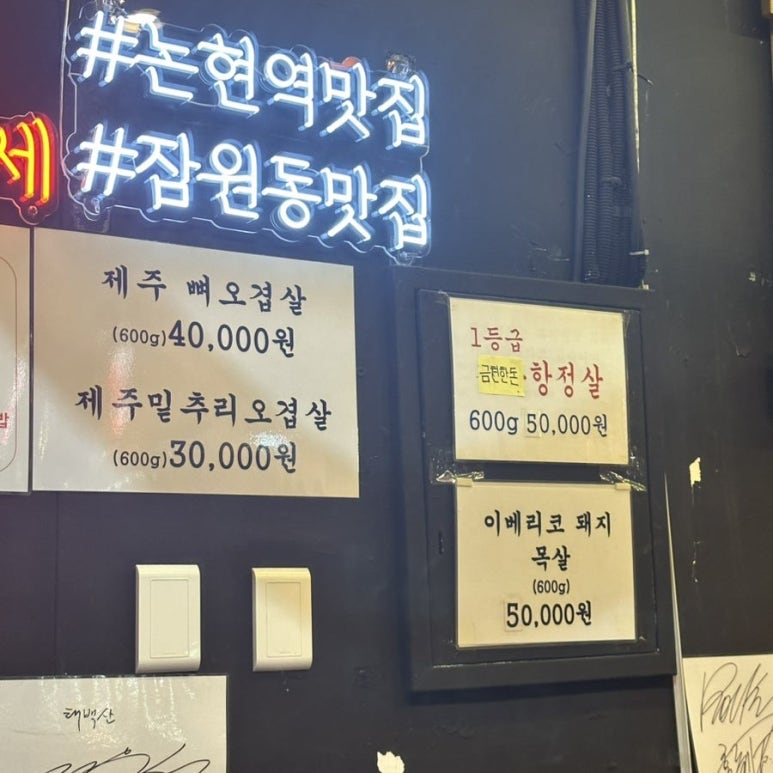 #논현역맛집
#잠원동맛집
제
제주 뼈오겹살
(600g)40,000원
제주밀추리오겹살
(600g)30,000원
밥
1등급
금편한돈 항정살
600g 50,000원
이베리코 돼지
목살
(600g)
50,000원
태백산